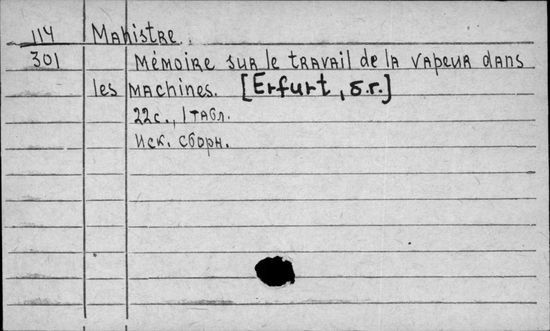 114 Mahistre.
301 Mémoire sur le travail de la vapeur dans
les machines. [Erfurt, б.г.]
22с., 1 табл.
Иск. сборн.